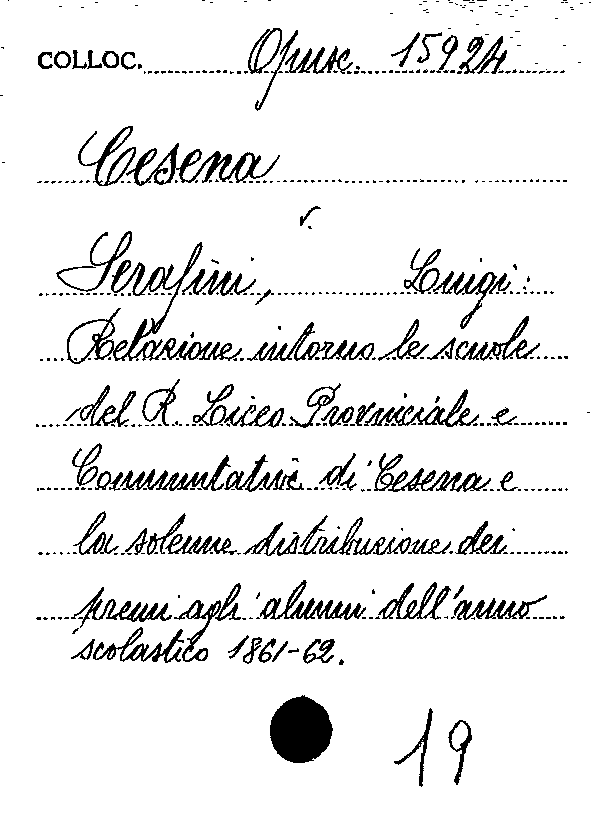 COLLOC. Opusc. 15924
Cesena
v.
Serafini, Luigi:
Relazione intorno le scuole
del R. Liceo Provinciale e
Comunitative di Cesena e
la solenne distribuzione dei
premi agli alunni dell'anno
scolastico 1861-62.
19